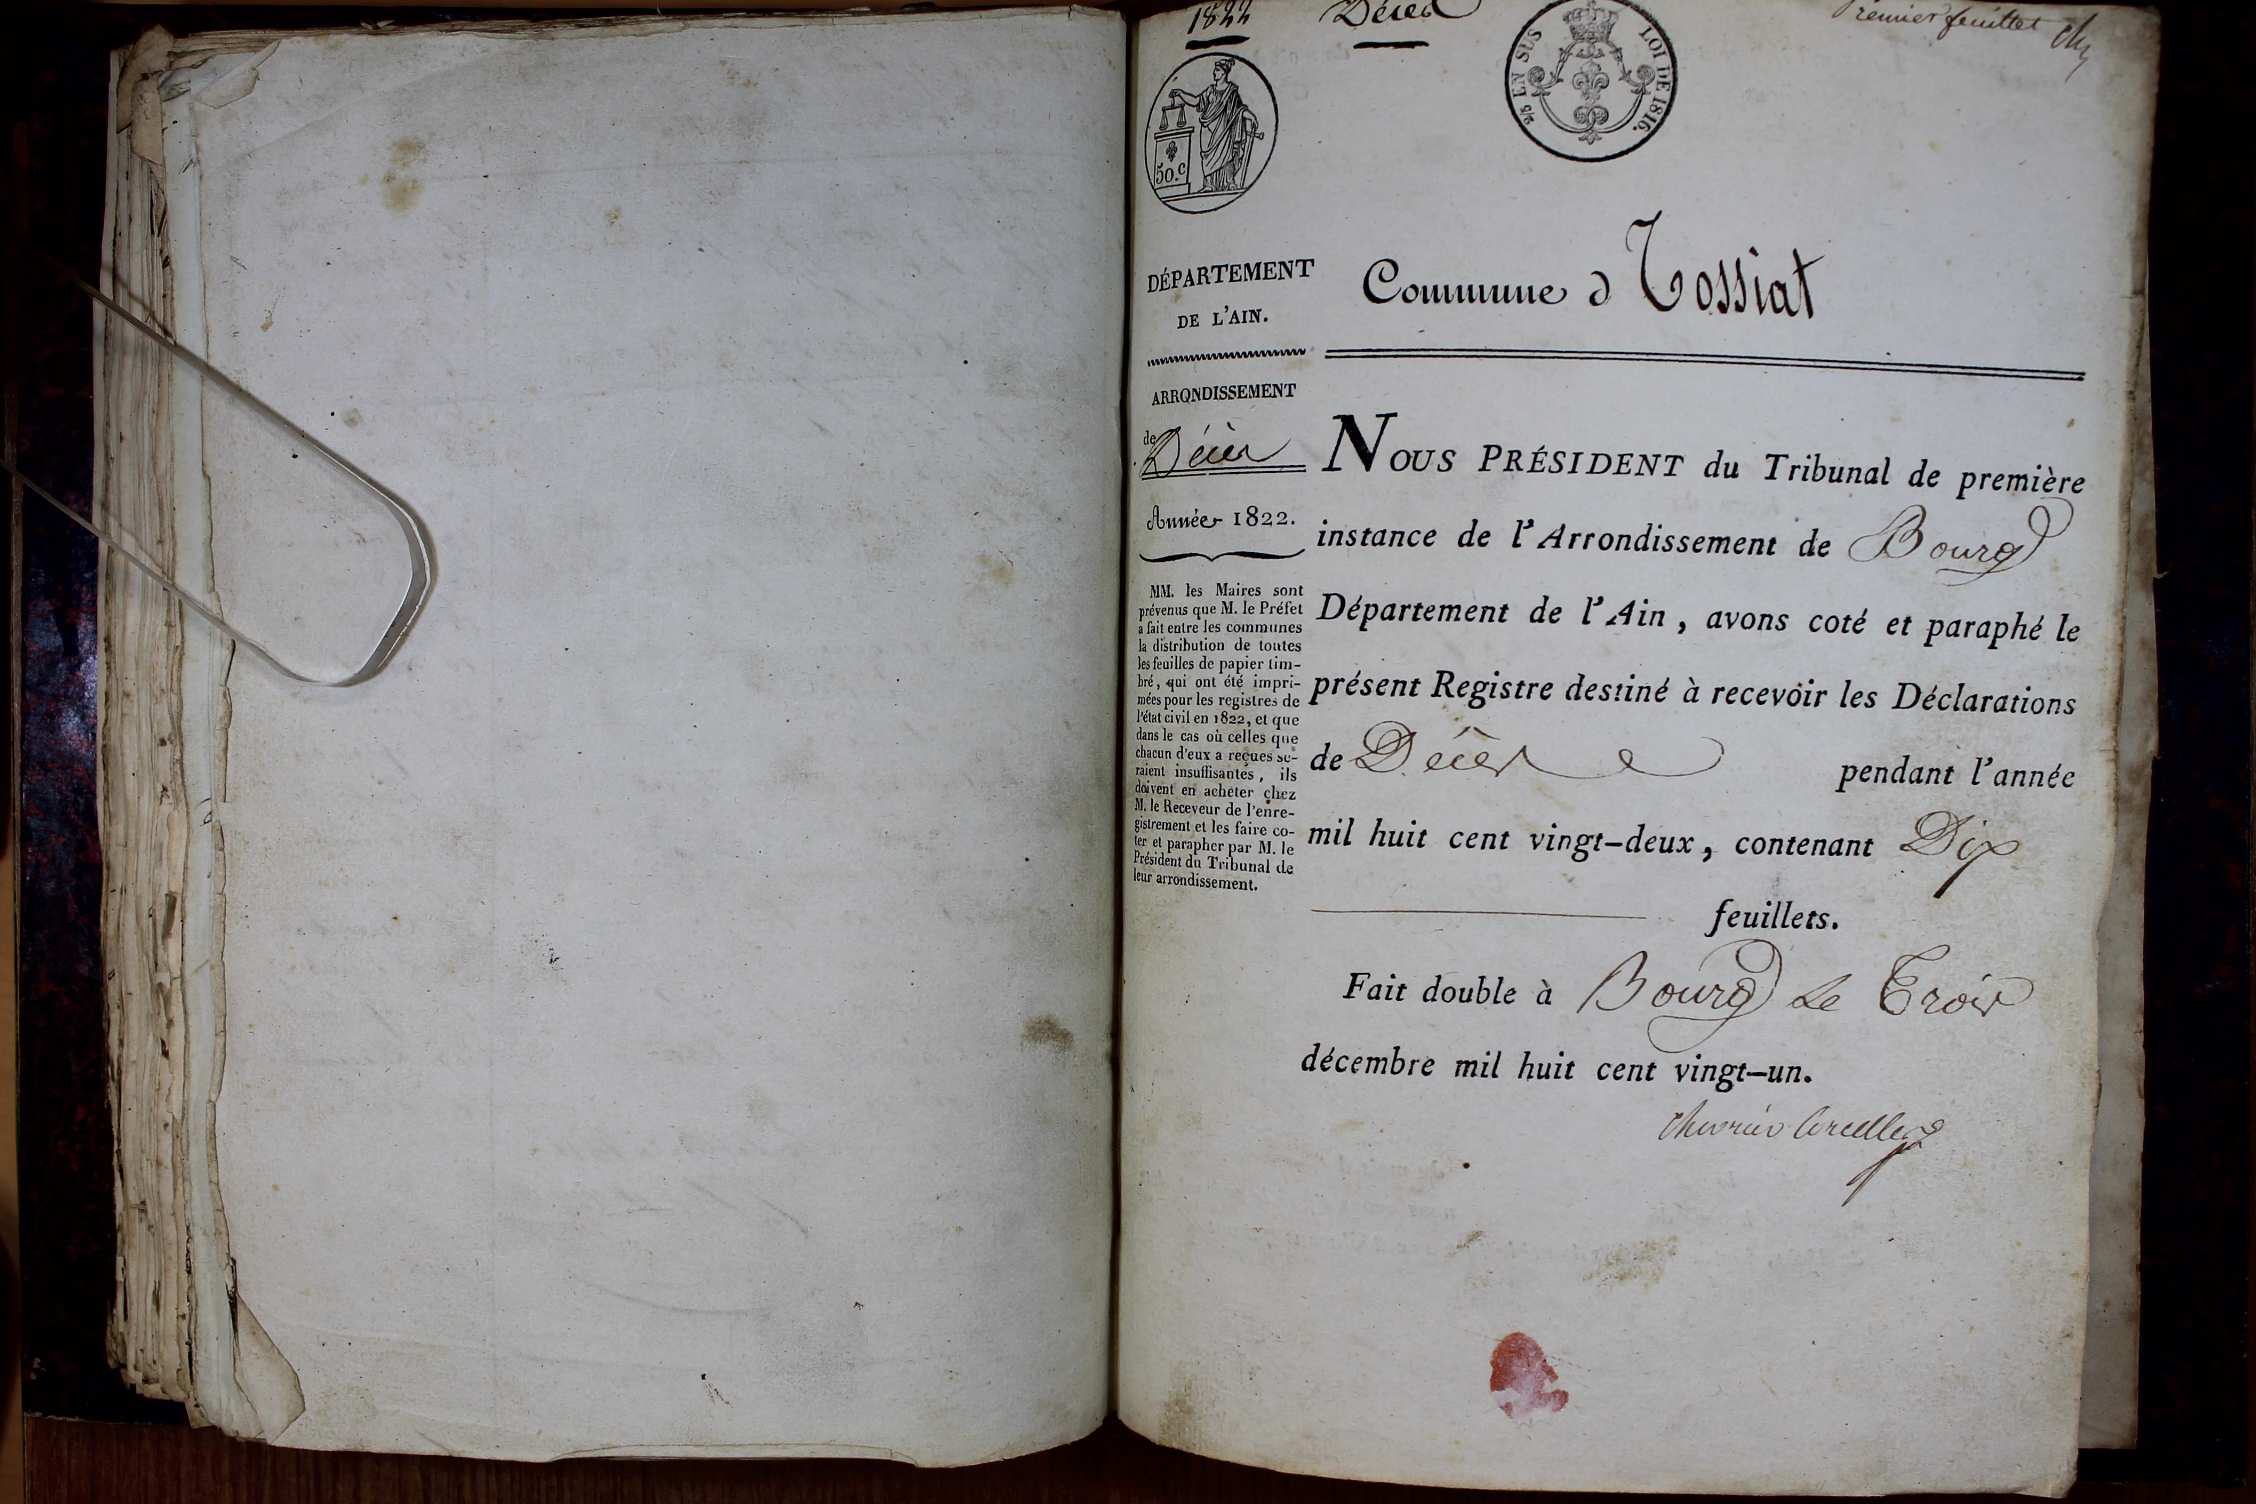 1822 Décès
Premier feuillet
2/5 EN SUS LOI DE 1816.
50.c
DÉPARTEMENT
DE L'AIN.
Commune d Tossiat
ARRONDISSEMENT
de
Décès
Année 1822.
MM. les Maires sont
prévenus que M. le Préfet
a fait entre les communes
la distribution de toutes
les feuilles de papier tim-
bré, qui ont été impri-
mées pour les registres de
l'état civil en 1822, et que
dans le cas où celles que
chacun d'eux a reçues se-
raient insuffisantes, ils
doivent en acheter chez
M. le Receveur de l'enre-
gistrement et les faire co-
ter et parapher par M. le
Président du Tribunal de
leur arrondissement.
NOUS PRÉSIDENT du Tribunal de première
instance de l'Arrondissement de Bourg
Département de l'Ain, avons coté et paraphé le
présent Registre destiné à recevoir les Déclarations
de Décès pendant l'année
mil huit cent vingt-deux, contenant Dix
feuillets.
Fait double à Bourg Le Trois
décembre mil huit cent vingt-un.